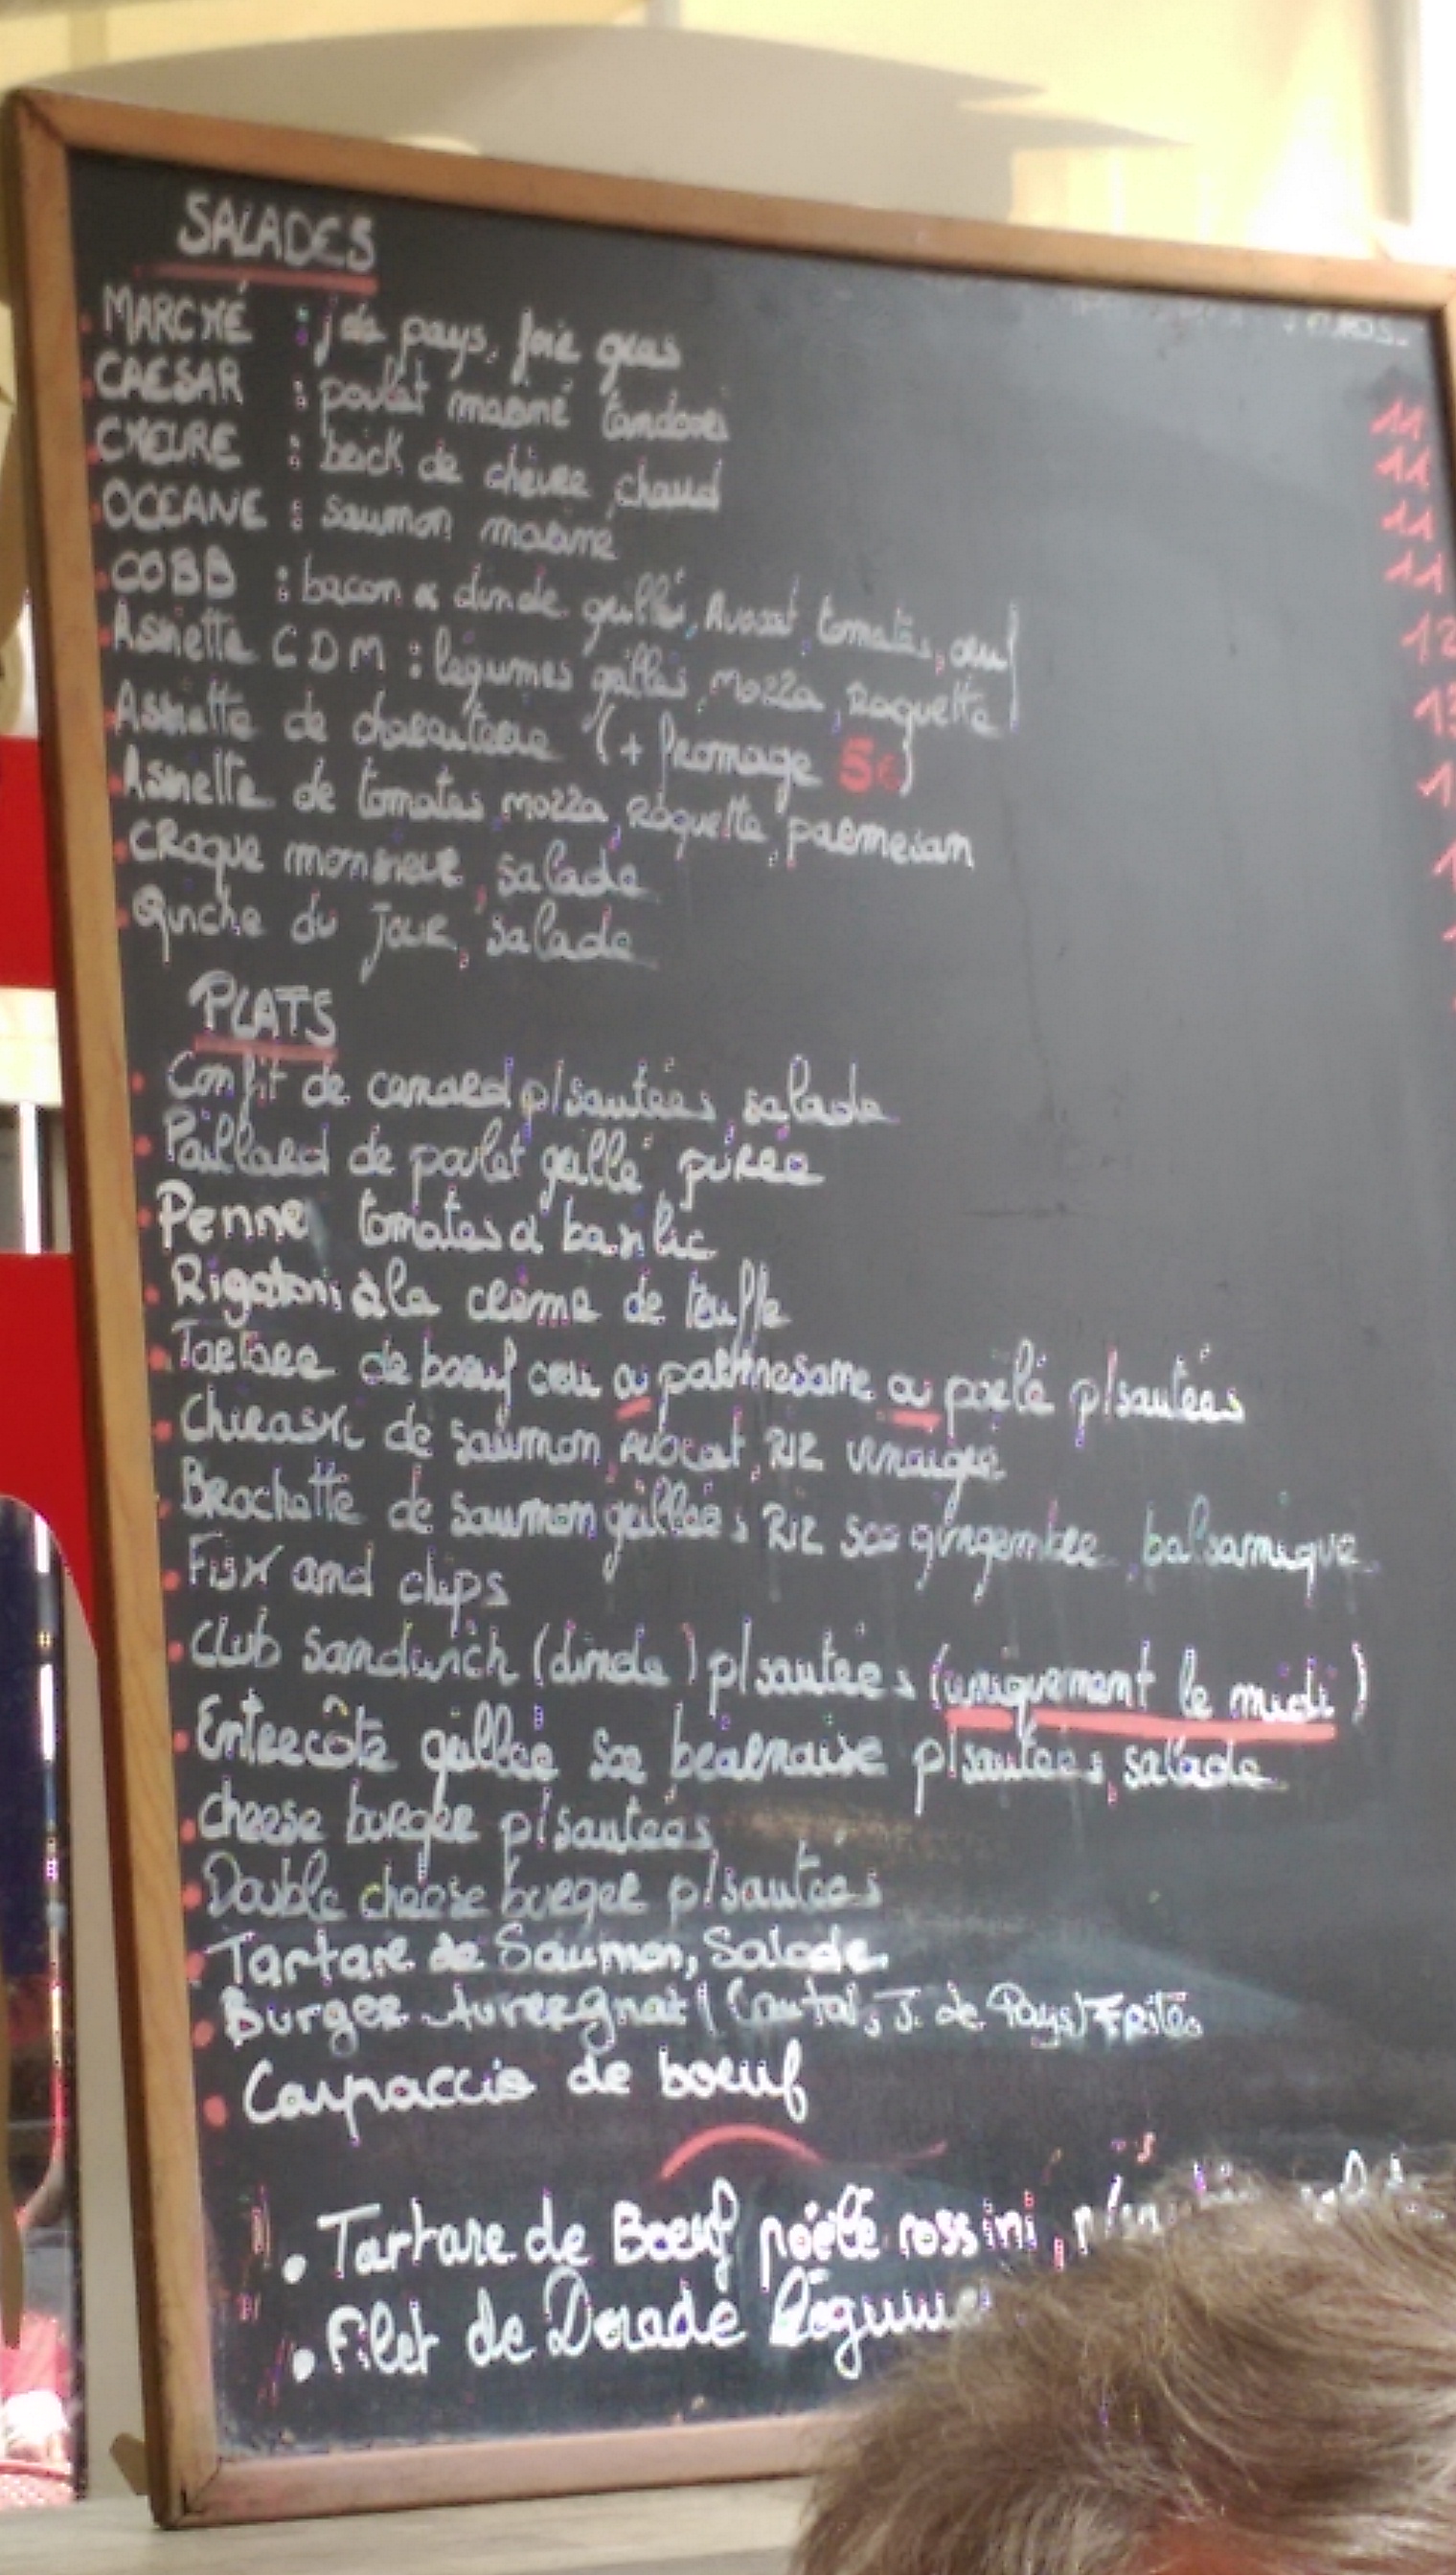 SALADES
EUROS
MARCHÉ : j de pays, foie gras 11
CAESAR : poulet mariné tandoori 11
CHEVRE : brick de chèvre chaud 11
OCEANE : saumon mariné 11
COBB : bacon & dinde grillés, Avocat, tomates, œuf 12
Assiette CDM : légumes grillés, mozza, Roquette
Assiette de charcuterie (+ fromage 5€)
Assiette de tomates, mozza, Roquette, parmesan
CRoque monsieur, salade
Quiche du jour, salade
PLATS
Confit de canard p/sautées, salade
Paillard de poulet grillé, purée
Penne tomates & basilic
Rigatoni à la crème de truffe
Tartare de bœuf cru ou parmesane ou poêlé p/sautées
Chirashi de saumon, avocat, Riz vinaigré
Brochette de saumon grillées, Riz sce gingembre, balsamique
Fish and chips
Club sandwich (dinde) p/sautées (uniquement le midi)
Entrecôte grillée sce béarnaise p/sautées, salade
cheese burger p/sautées
Double cheese burger p/sautées
Tartare de Saumon, Salade
Burger Auvergnat (Cantal, J. de Pays) Frites
Carpaccio de bœuf
Tartare de Bœuf poêlé rossini,
Filet de Dorade